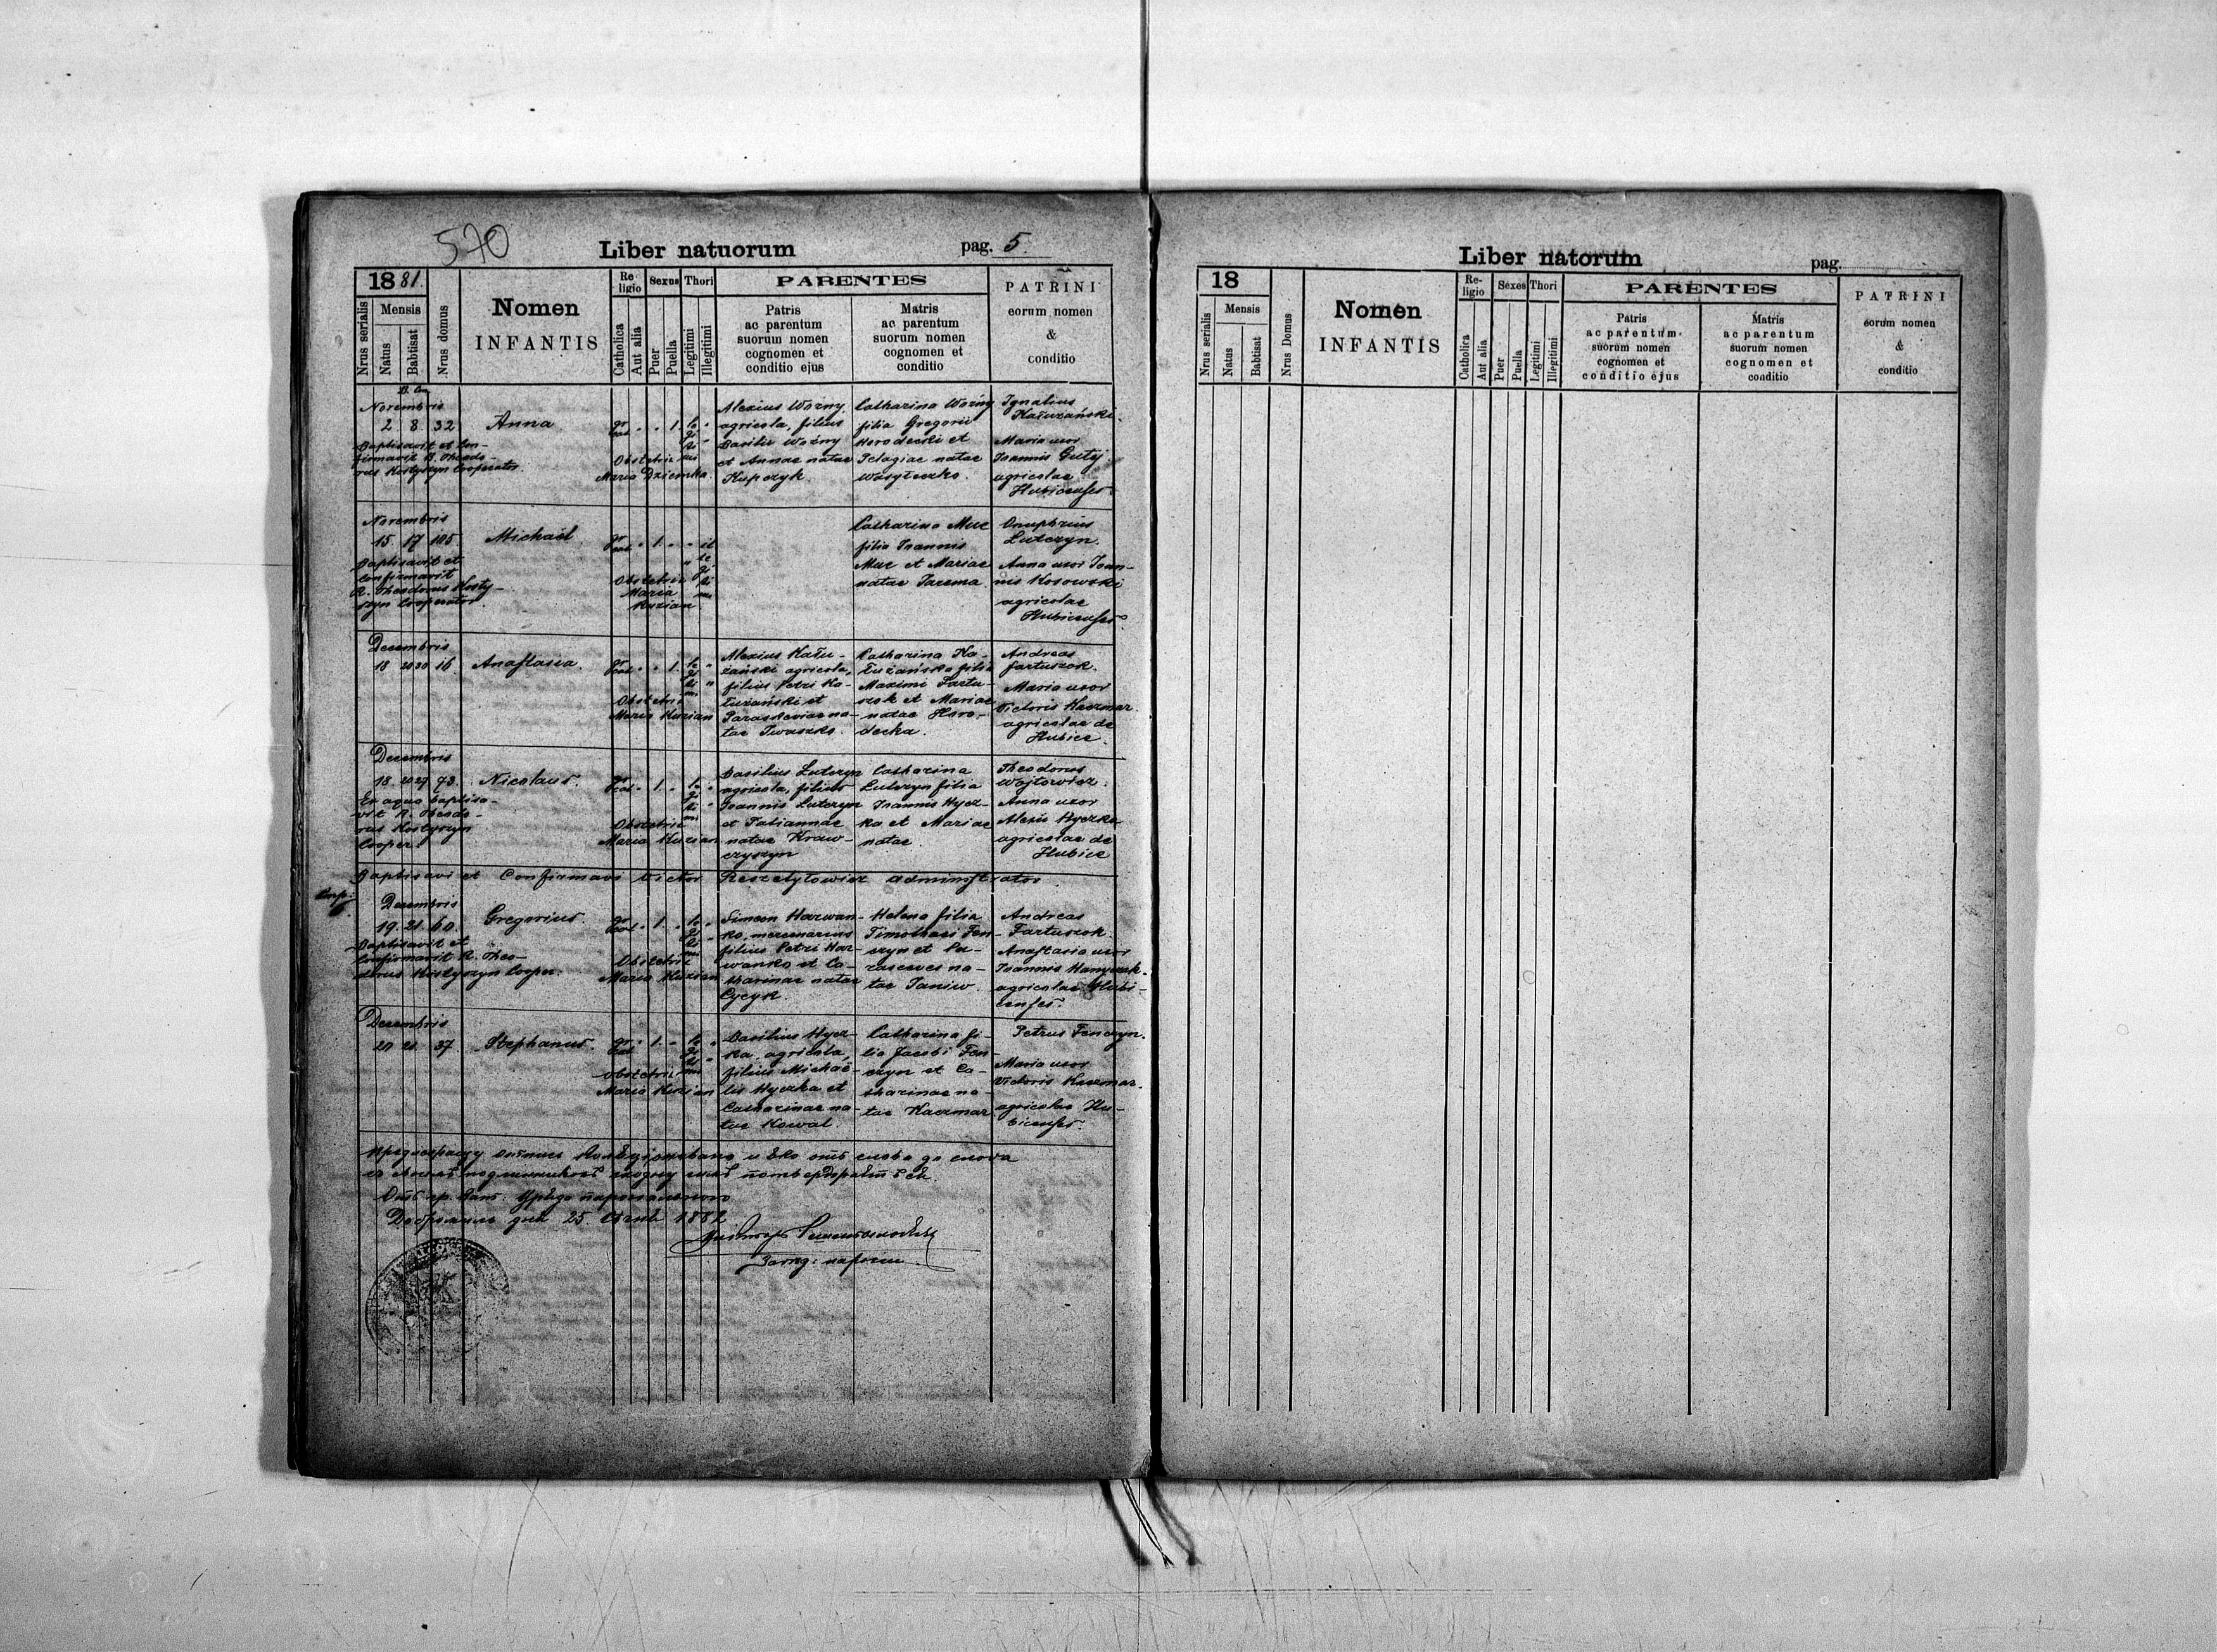 570
Liber natuorum
pag. 5
1881.
Nrus serialis
Mensis
Natus
Babtisat
Nrus domus
Nomen
INFANTIS
Re-
ligio
Catholica
Aut alia
Sexus
Puer
Puella
Thori
Legitimi
Illegitimi
PARENTES
Patris
ac parentum
suorum nomen
cognomen et
conditio ejus
Matris
ac parentum
suorum nomen
cognomen et
conditio
PATRINI
eorum nomen
&
conditio
Novembris
2 8 32
Baptisavit et Con-
firmavit R. Theodo-
rus Kostyszyn Cooperator.
Anna
gr cat " " 1. le gi ti mi "
Obstetrix
Maria Dziemka.
Alexius Woźny,
agricola, filius
Basilii Woźny
et Annae natae
Kupczyk.
Catharina Woźny
filia Gregorii
Horodecki et
Pelagiae natae
Wasyłeczko.
Ignatius
Kałużański.
Maria uxor
Joannis Gutÿ.
agricolae
Hubicenses.
Novembris
15 17 105
Baptisavit et
Confirmavit
R. Theodorus Kosty-
szyn Cooperator.
Michaël
gr cat " 1. " " il le gi ti mi
Obstetrix
Maria
Kuzian.
Catharina Muc
filia Joannis
Muc et Mariae
natae Jarema.
Onuphrius
Lutczyn.
Anna uxor Joan-
nis Kosowski
agricolae
Hubicenses.
Decembris
18 20 30 16
Anastasia.
gr cat " " 1. le gi ti mi "
Obstetrix
Maria Kuzian
Alexius Kału-
żański agricola,
filius Petri Ka-
łużański et
Parasceviae na-
tae Iwaszko.
Catharina Ka-
łużańska filia
Maximi Fartu-
szok et Mariae
natae Horo-
decka.
Andreas
Fartuszok.
Maria uxor
Victoris Kaczmar.
agricolae de
Hubice.
Decembris
18. 20 29 73.
Ex aqua baptisa-
vit R. Theodo-
rus Kostyszyn
Cooper.
Nicolaus.
gr cat " 1. " le gi ti mi "
Obstetrix
Maria Kuzian
Basilius Lutczyn
agricola, filius
Joannis Lutczyn
et Tatiannae
natae Kraw-
czyszyn
Catharina
Lutczyn filia
Joannis Hycz-
ka et Mariae
natae
Theodorus
Wojtowicz.
Anna uxor
Alexii Hyczka
agricolae de
Hubice
Baptisavi et Confirmavi Victor Reszetyłowicz administrator
Decembris
19. 21. 60.
Baptisavit et
Confirmavit R. Theo-
dorus Kostyszyn Cooper.
Gregorius.
gr cat " 1. " le gi ti mi "
Obstetrix
Maria Kuzian
Simeon Harwan-
ko, mercenarius
filius Petri Har-
wanko et Ca-
tharinae natae
Cycyk.
Helena filia
Timothaei Fen-
czyn et Pa-
rasceves na-
tae Janiw.
Andreas
Fartuszok.
Anastasia uxor
Joannis Hanyczak.
agricolae Hubi-
censes.
Decembris
20 21. 37
Stephanus.
gr cat " 1. " le gi ti mi "
Obstetrix
Maria Kuzian
Basilius Hycz-
ka, agricola,
filius Michae-
lis Hyczka et
Catharinae na-
tae Kowal.
Catharina fi-
lia Jacobi Fen-
czyn et Ca-
tharinae na-
tae Kaczmar
Petrus Fenczyn.
Maria uxor
Victoris Kaczmar.
agricolae Hu-
bicenses.
Добромиль дня 25 1882
Liber natorum
pag.
18
Nrus serialis
Mensis
Natus
Babtisat
Nrus Domus
Nomen
INFANTIS
Re-
ligio
Catholica
Aut alia
Sexes
Puer
Puella
Thori
Legitimi
Illegitimi
PARENTES
Patris
ac parentum
suorum nomen
cognomen et
conditio ejus
Matris
ac parentum
suorum nomen
cognomen et
conditio
PATRINI
eorum nomen
&
conditio